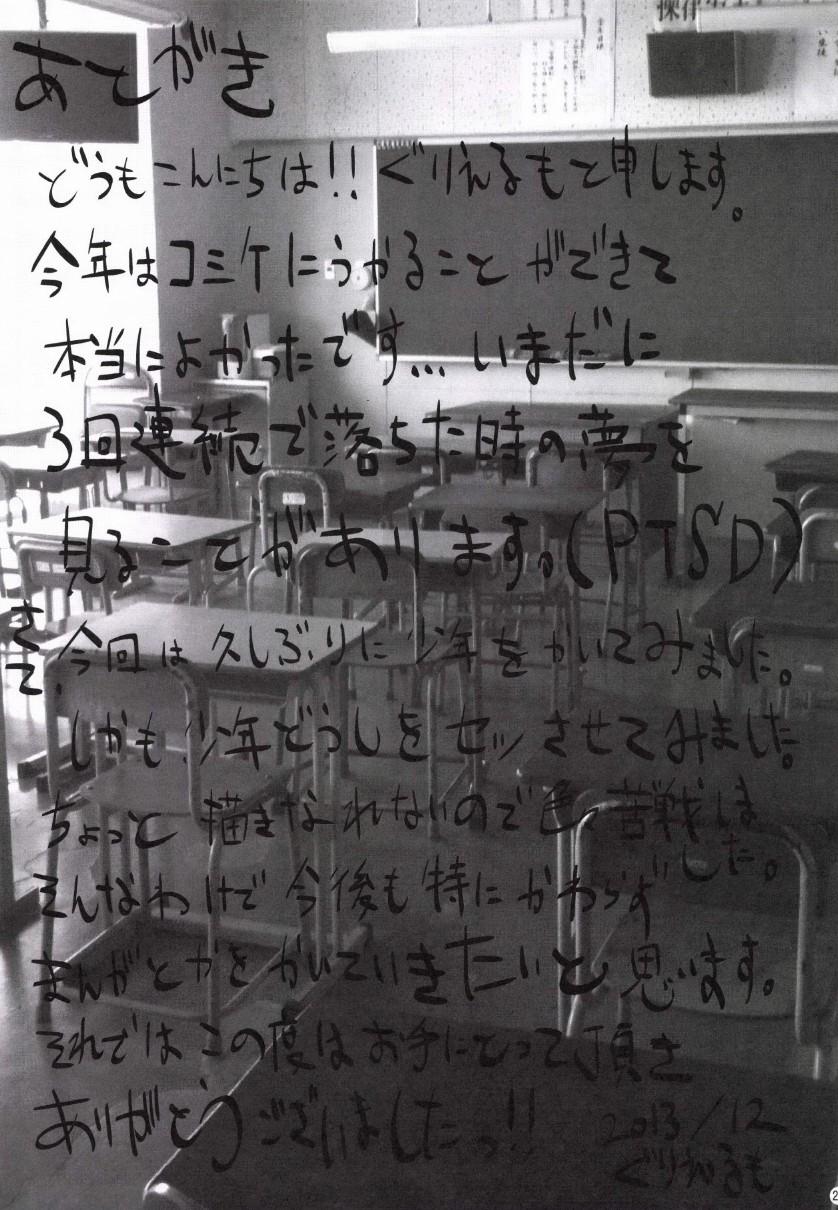 あとがき
どうもこんにちは!!ぐりえるもと申します。
今年はコミケにうかることができて
本当によかったです...いまだに
3回連続で落ちた時の夢を
見ることがあります。(PTSD)
さて、今回は久しぶりに少年をかいてみました。
しかも少年どうしをセッさせてみました。
ちょっと描きなれないので色々苦戦しました。
そんなわけで今後も特にかわらず
まんがとかをかいていきたいと思います。
それではこの度はお手にとって頂き
ありがとうございましたっ!!
2013/12
ぐりえるも